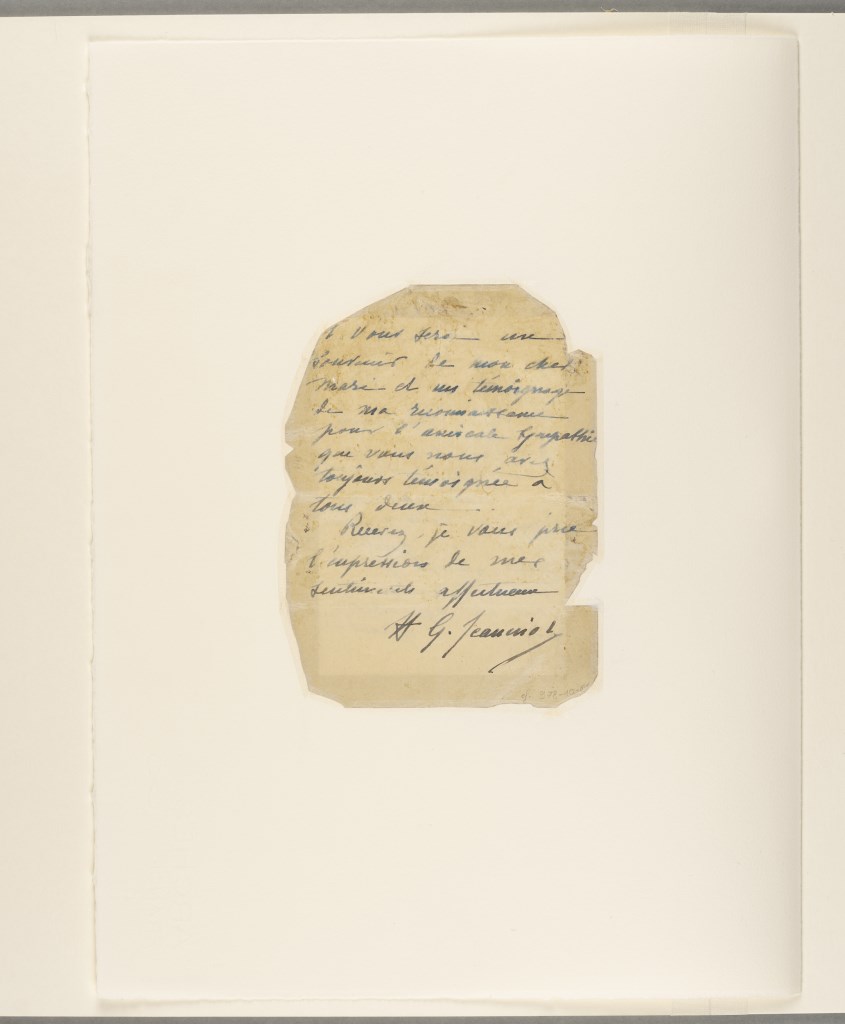 Vous sera une
Souvenir de mon cher
Mari et un témoignage
de ma reconnaissance
pour l'amicale Sympathie
que vous nous avez
toujours témoignée à
tous deux
Recevez, je vous prie
l'expression de mes
sentiments affectueux
H G. Jeanniot